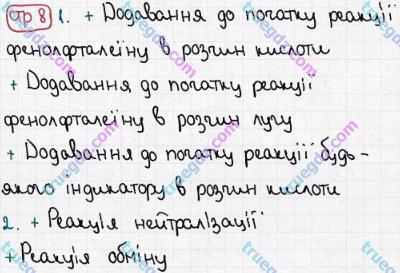 стр 8 1. + Додавання до початку реакції
фенолфталеїну в розчин кислоти
+ Додавання до початку реакції
фенолфталеїну в розчин лугу
+ Додавання до початку реакції будь-
якого індикатору в розчин кислоти
2. + Реакція нейтралізації
+ Реакція обміну
truegdz.com